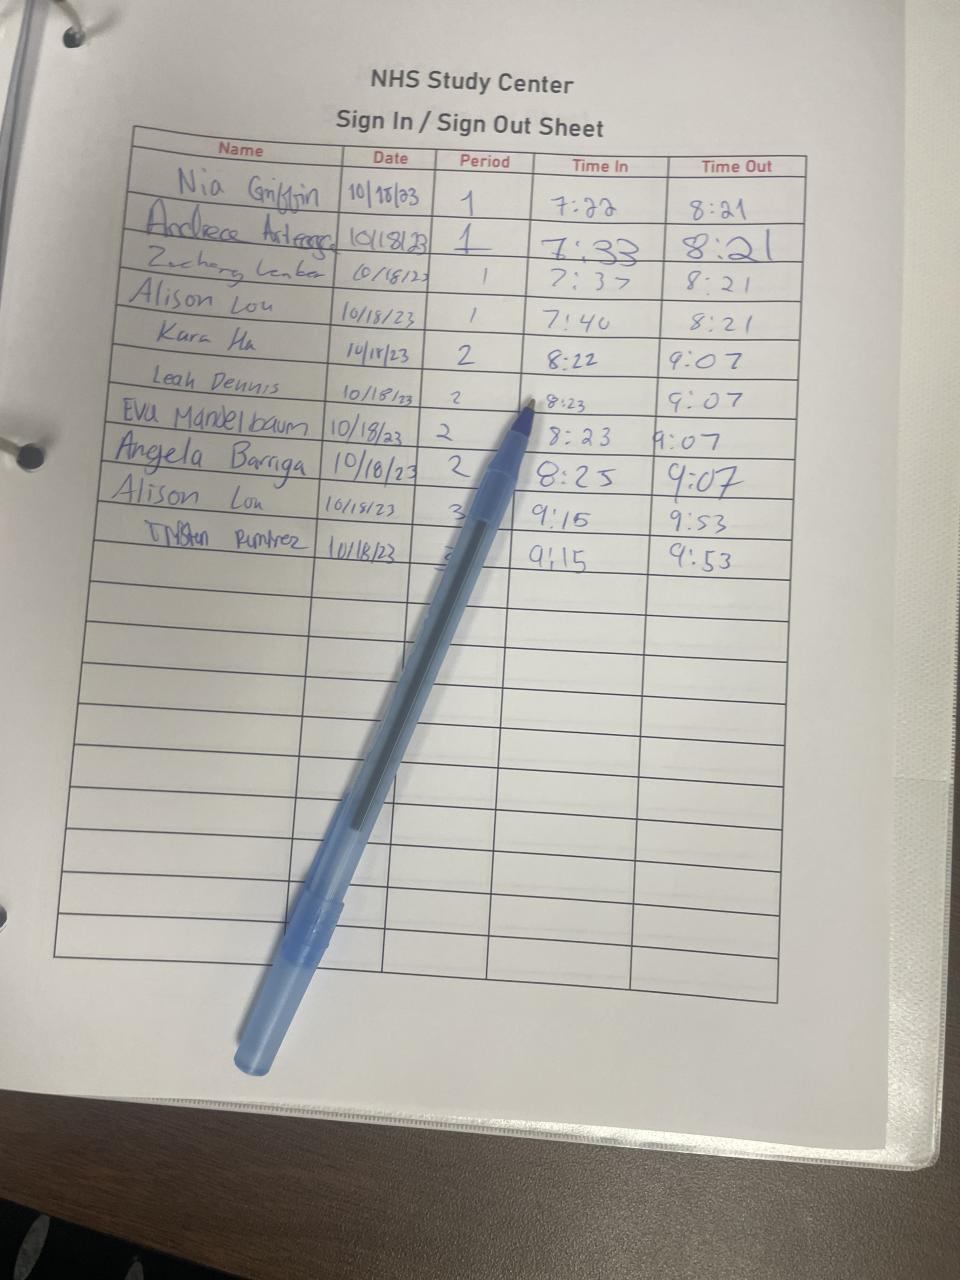 NHS Study Center
Sign In / Sign Out Sheet
Name Date Period Time In Time Out
Nia Griffin 10/18/23 1 7:22 8:21
10/18/23 1 7:33 8:21
Zachary 10/18/23 1 7:37 8:21
Alison Lou 10/18/23 1 7:40 8:21
Kara Ha 10/18/23 2 8:22 9:07
Leah Dennis 10/18/23 2 8:23 9:07
Eva Mandelbaum 10/18/23 2 8:23 9:07
Angela Barriga 10/18/23 2 8:25 9:07
Alison Lou 10/18/23 3 9:15 9:53
10/18/23 9:15 9:53